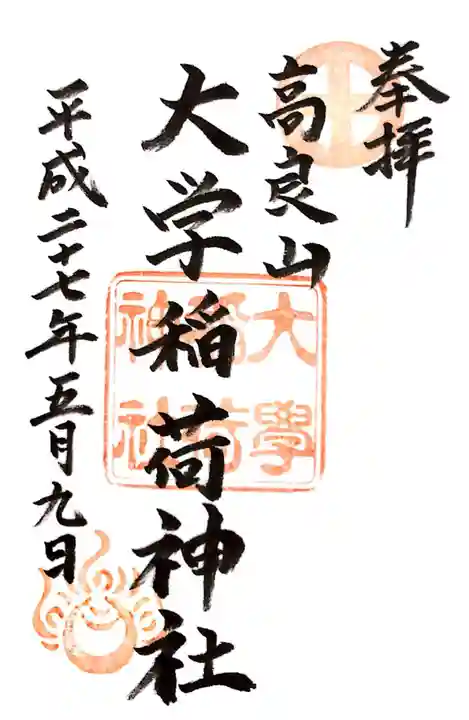 奉拝
高良山
大学稲荷神社
大學
稲荷
神社
平成二十七年五月九日